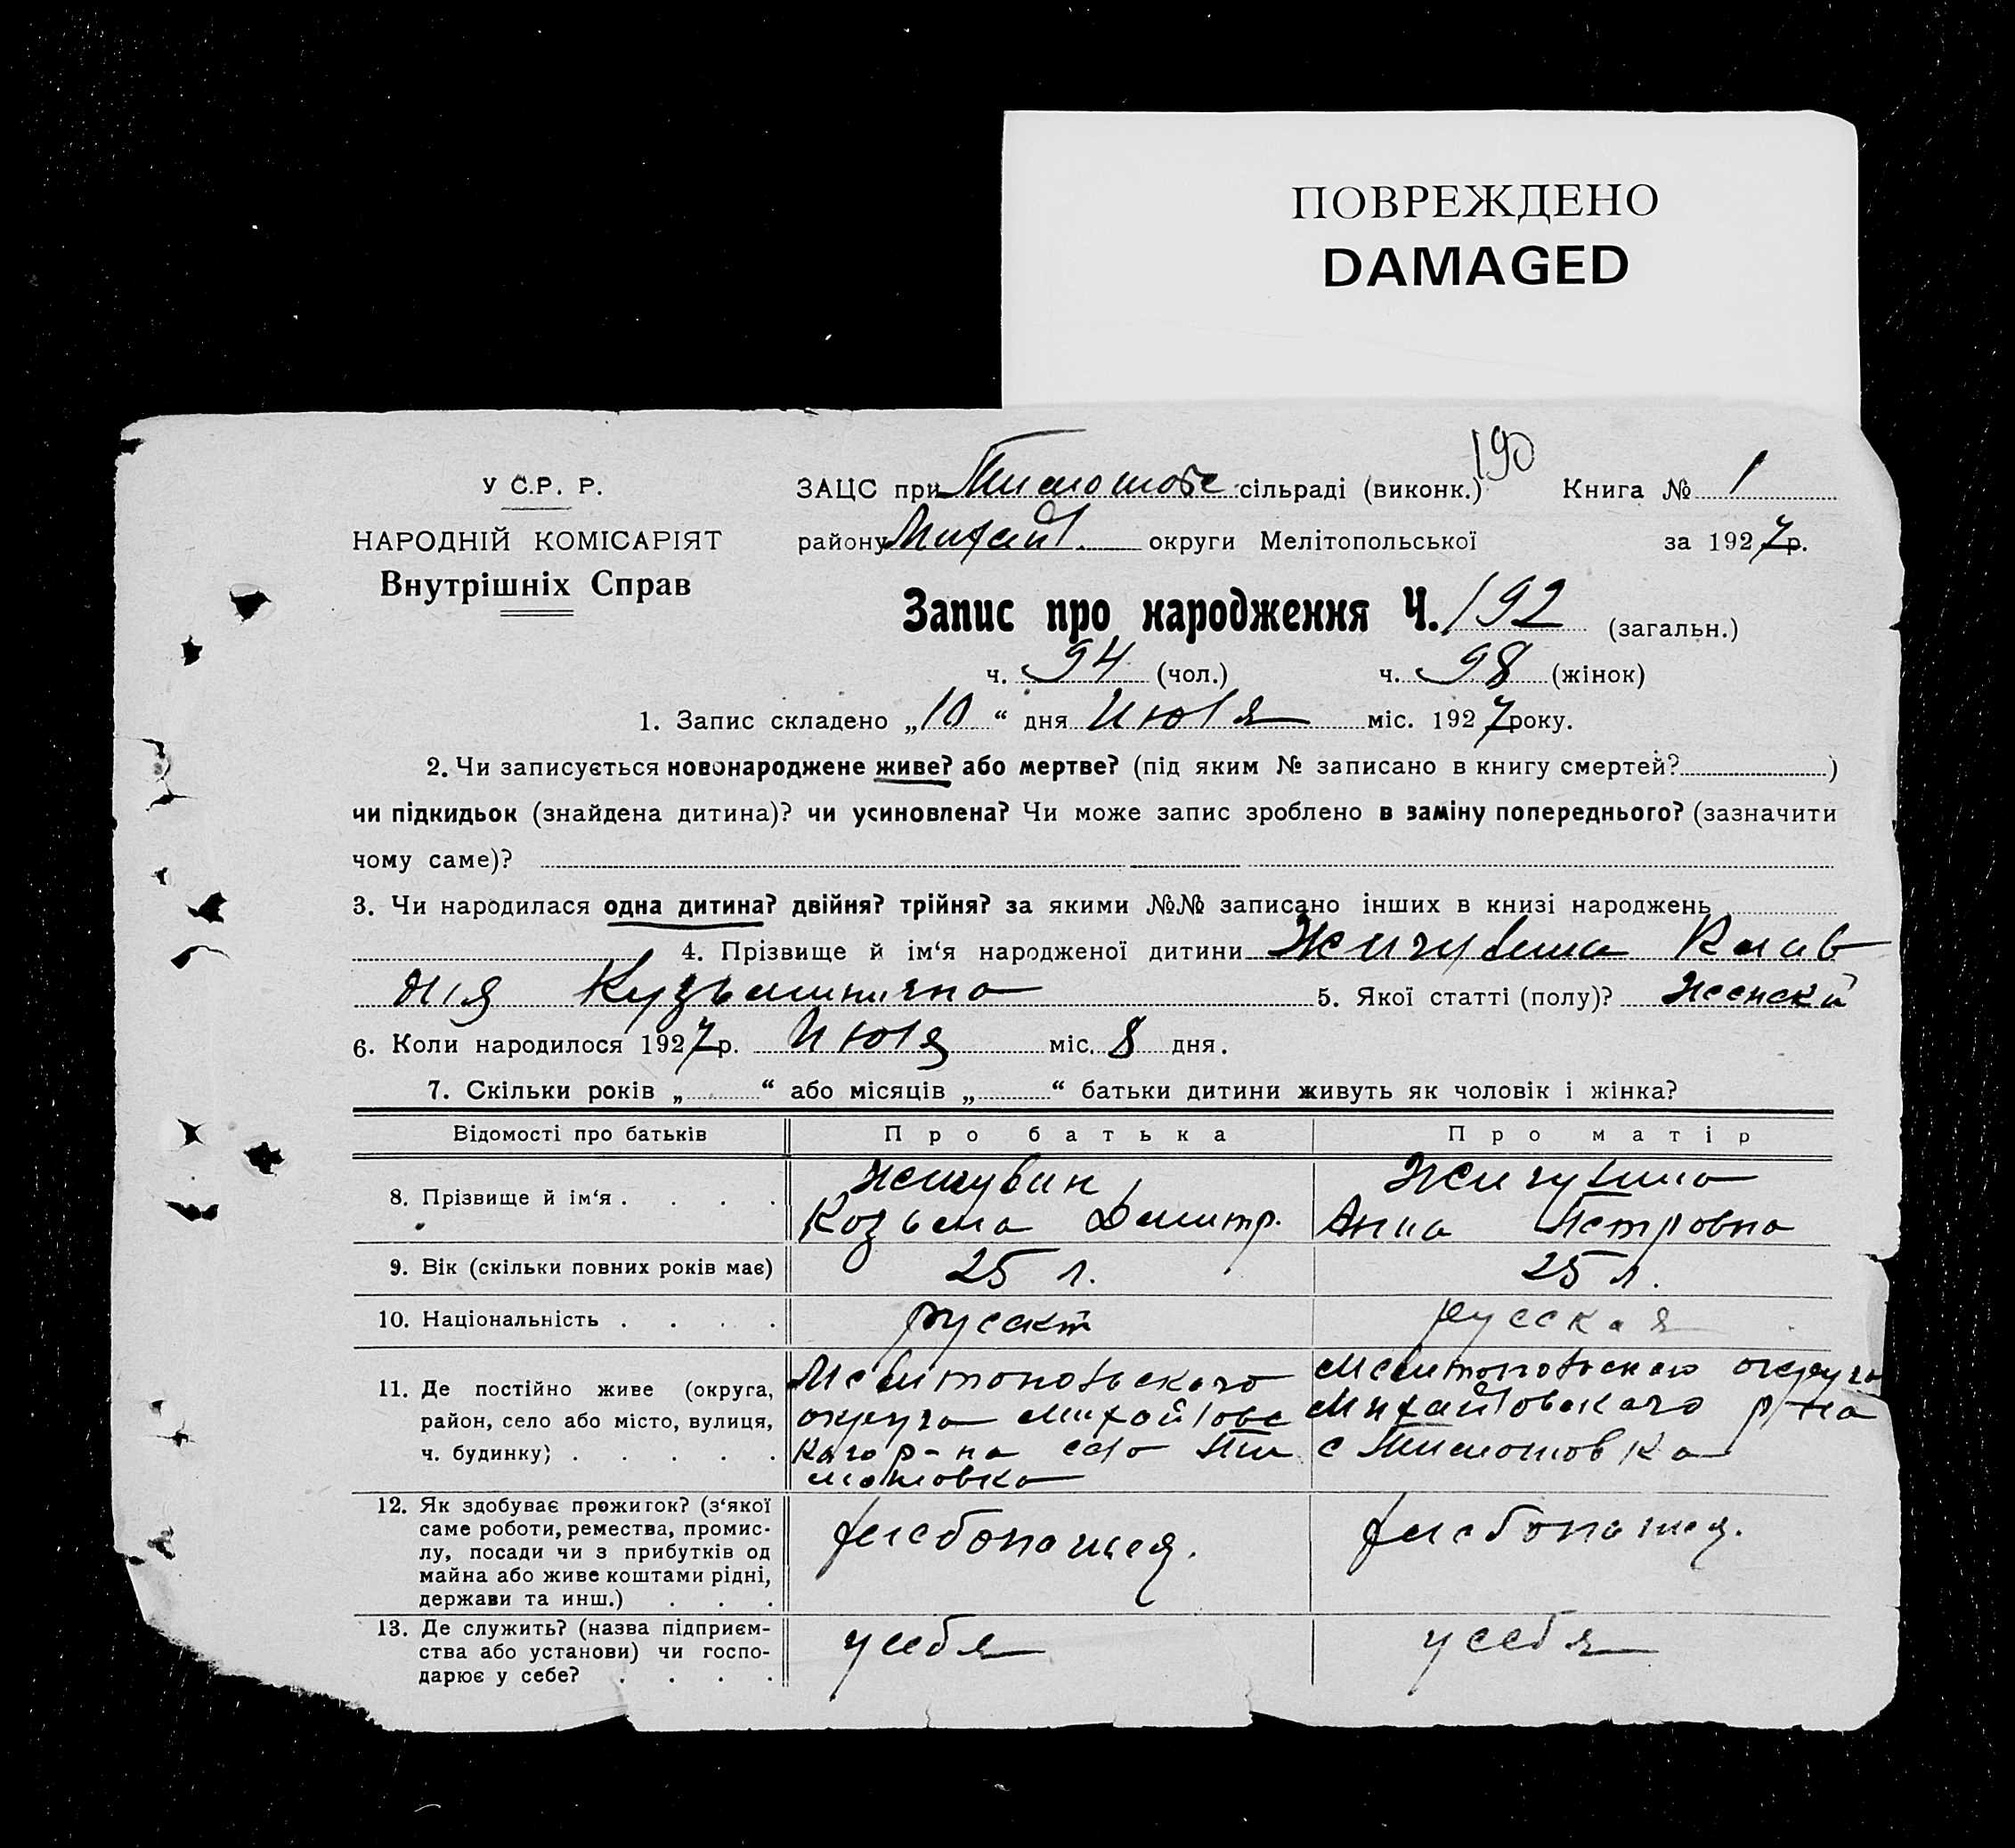 ПОВРЕЖДЕНО
DAMAGED
190
У С.Р. Р.
ЗАЦС при Тимошовс сільраді (виконк.) Книга № 1
НАРОДНІЙ КОМІСАРІЯТ
району Михайл. округи Мелітопольської за 1927 р.
Внутрішніх Справ
Запис про народження Ч. 192 (загальн.)
ч. 94 (чол.) ч. 98 (жінок)
1. Запис складено „10“ дня Июля міс. 1927 року.
2. Чи записується новонароджене живе? або мертве? (під яким № записано в книгу смертей? )
чи підкидьок (знайдена дитина)? чи усиновлена? Чи може запис зроблено в заміну попереднього? (зазначити
чому саме)?
3. Чи народилася одна дитина? двійня? трійня? за якими №№ записано інших в книзі народжень
4. Прізвище й ім‘я народженої дитини Жигулина Клав
дия Кузьминична 5. Якої статті (полу)? женский
6. Коли народилося 1927 р. Июля міс. 8 дня.
7. Скільки років „ “ або місяців „ “ батьки дитини живуть як чоловік і жінка?
Відомості про батьків Про батька Про матір
8. Прізвище й ім‘я . . . .
Козьма Дмитр. Анна Петровна
9. Вік (скільки повних років має) 25 л. 25 л.
10. Національність . . . . русский русская
11. Де постійно живе (округа, Мелитопольского Мелитопольского округа
район, село або місто, вулиця, округа Михайловс Михайловского р-на
ч. будинку) . . . . . кого р-на село Ти с Тимошовка
мошовка
12. Як здобуває прожиток? (з‘якої
саме роботи, ремества, промис-
лу, посади чи з прибутків од хлебопашец. хлебопашец.
майна або живе коштами рідні,
держави та инш.) . . .
13. Де служить? (назва підприєм-
ства або установи) чи госпо- у себя у себя
дарює у себе? . . . .